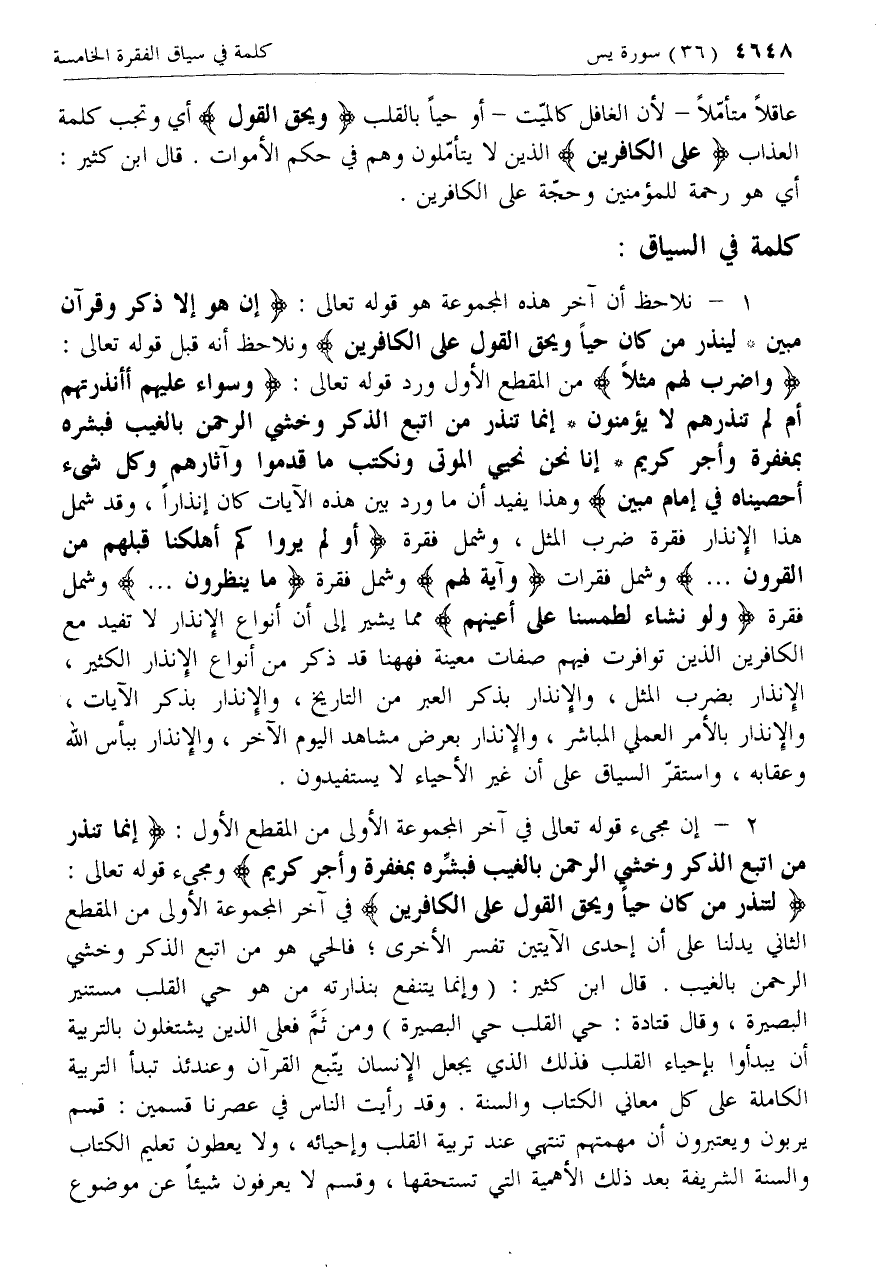 ٤٦٤٨ (٣٦) سورة يس كلمة في سياق الفقرة الخامسة
عاقلاً متأمّلاً – لأن الغافل كالميّت – أو حياً بالقلب ﴿ ويحق القول ﴾ أي وتجب كلمة
العذاب ﴿ على الكافرين ﴾ الذين لا يتأمّلون وهم في حكم الأموات . قال ابن كثير :
أي هو رحمة للمؤمنين وحجّة على الكافرين .
كلمة في السياق :
١ – نلاحظ أن آخر هذه المجموعة هو قوله تعالى : ﴿ إن هو إلا ذكر وقرآن
مبين * لينذر من كان حياً ويحق القول على الكافرين ﴾ ونلاحظ أنه قبل قوله تعالى :
﴿ واضرب لهم مثلاً ﴾ من المقطع الأول ورد قوله تعالى : ﴿ وسواء عليهم أأنذرتهم
أم لم تنذرهم لا يؤمنون * إنما تنذر من اتبع الذكر وخشي الرحمن بالغيب فبشره
بمغفرة وأجر كريم * إنا نحن نحيي الموتى ونكتب ما قدموا وآثارهم وكل شيء
أحصيناه في إمام مبين ﴾ وهذا يفيد أن ما ورد بين هذه الآيات كان إنذاراً ، وقد شمل
هذا الإنذار فقرة ضرب المثل ، وشمل فقرة ﴿ أو لم يروا كم أهلكنا قبلهم من
القرون ... ﴾ وشمل فقرات ﴿ وآية لهم ﴾ وشمل فقرة ﴿ ما ينظرون ... ﴾ وشمل
فقرة ﴿ ولو نشاء لطمسنا على أعينهم ﴾ مما يشير إلى أن أنواع الإنذار لا تفيد مع
الكافرين الذين توافرت فيهم صفات معينة فههنا قد ذكر من أنواع الإنذار الكثير ،
الإنذار بضرب المثل ، والإنذار بذكر العبر من التاريخ ، والإنذار بذكر الآيات ،
والإنذار بالأمر العملي المباشر ، والإنذار بعرض مشاهد اليوم الآخر ، والإنذار ببأس الله
وعقابه ، واستقرّ السياق على أن غير الأحياء لا يستفيدون .
٢ – إن مجيء قوله تعالى في آخر المجموعة الأولى من المقطع الأول : ﴿ إنما تنذر
من اتبع الذكر وخشي الرحمن بالغيب فبشِّره بمغفرة وأجر كريم ﴾ ومجيء قوله تعالى :
﴿ لتنذر من كان حياً ويحق القول على الكافرين ﴾ في آخر المجموعة الأولى من المقطع
الثاني يدلنا على أن إحدى الآيتين تفسر الأخرى ؛ فالحي هو من اتبع الذكر وخشي
الرحمن بالغيب . قال ابن كثير : ( وإنما يتنفع بنذارته من هو حي القلب مستنير
البصيرة ، وقال قتادة : حي القلب حي البصيرة ) ومن ثَمَّ فعلى الذين يشتغلون بالتربية
أن يبدأوا بإحياء القلب فذلك الذي يجعل الإنسان يتّبع القرآن وعندئذ تبدأ التربية
الكاملة على كل معاني الكتاب والسنة . وقد رأيت الناس في عصرنا قسمين : قسم
يربون ويعتبرون أن مهمتهم تنتهي عند تربية القلب وإحيائه ، ولا يعطون تعليم الكتاب
والسنة الشريفة بعد ذلك الأهمية التي تستحقها ، وقسم لا يعرفون شيئاً عن موضوع